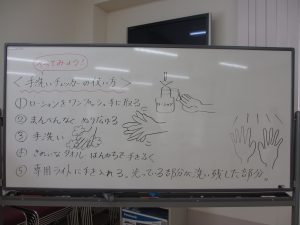 やってみよう！
＜手洗いチェッカーの使い方＞
① ローションをワンプッシュ、手に取る
② まんべんなく ぬりひろげる
③ 手洗い
④ きれいなタオル・はんかちで手をふく
⑤ 専用ライトに手を入れる。光っている部分が洗い残した部分。